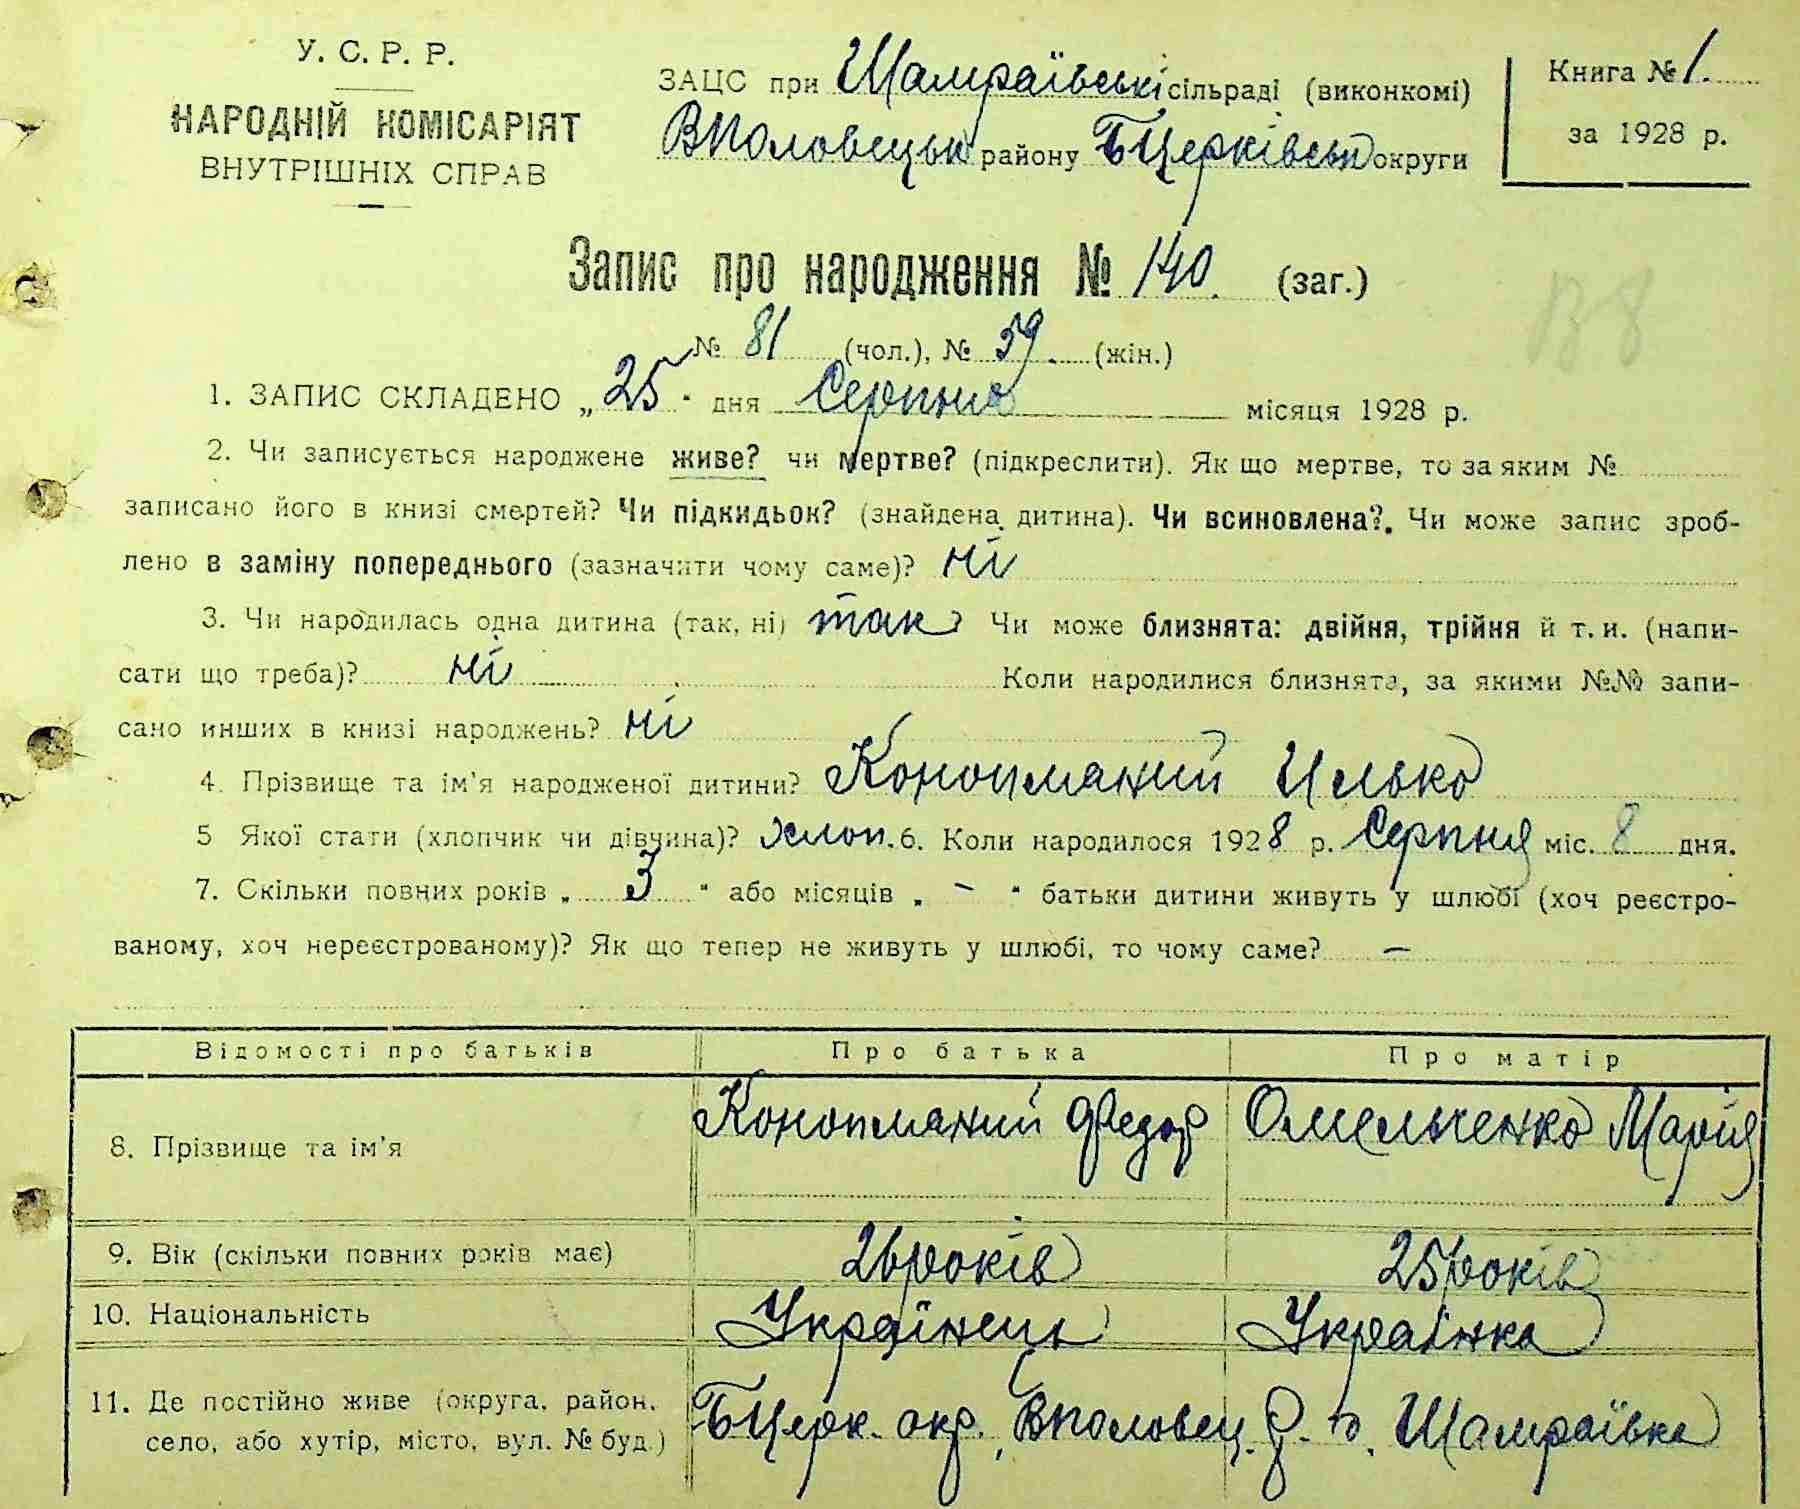 У. С. Р. Р.
НАРОДНІЙ КОМІСАРІЯТ
ВНУТРІШНІХ СПРАВ
ЗАЦС при Шамраївські сільраді (виконкомі)
ВПоловецьк району БЦерківськ округи
Книга № 1.
за 1928 р.
Запис про народження № 140. (заг.)
№ 81 (чол.), № 59. (жін.)
1. ЗАПИС СКЛАДЕНО „25" дня Серпня місяця 1928 р.
2. Чи записується народжене живе? чи мертве? (підкреслити). Як що мертве, то за яким №
записано його в книзі смертей? Чи підкидьок? (знайдена дитина). Чи всиновлена?. Чи може запис зроб-
лено в заміну попереднього (зазначити чому саме)? ні
3. Чи народилась одна дитина (так, ні) так Чи може близнята: двійня, трійня й т. и. (напи-
сати що треба)? ні Коли народилися близнята, за якими №№ запи-
сано инших в книзі народжень? ні
4. Прізвище та ім'я народженої дитини? Конопляний Илько
5 Якої стати (хлопчик чи дівчина)? хлоп. 6. Коли народилося 1928 р. Серпня міс. 8 дня.
7. Скільки повних років „ 3 " або місяців „ – " батьки дитини живуть у шлюбі (хоч реєстро-
ваному, хоч нереєстрованому)? Як що тепер не живуть у шлюбі, то чому саме? –
Відомості про батьків Про батька Про матір
8. Прізвище та ім'я Конопляний Федор Омельченко Марія
9. Вік (скільки повних років має) 26 років 25 років
10. Національність Українець Українка
11. Де постійно живе (округа, район,
село, або хутір, місто, вул. № буд.) БЦерк. окр., ВПоловец. р. с. Шамраївка